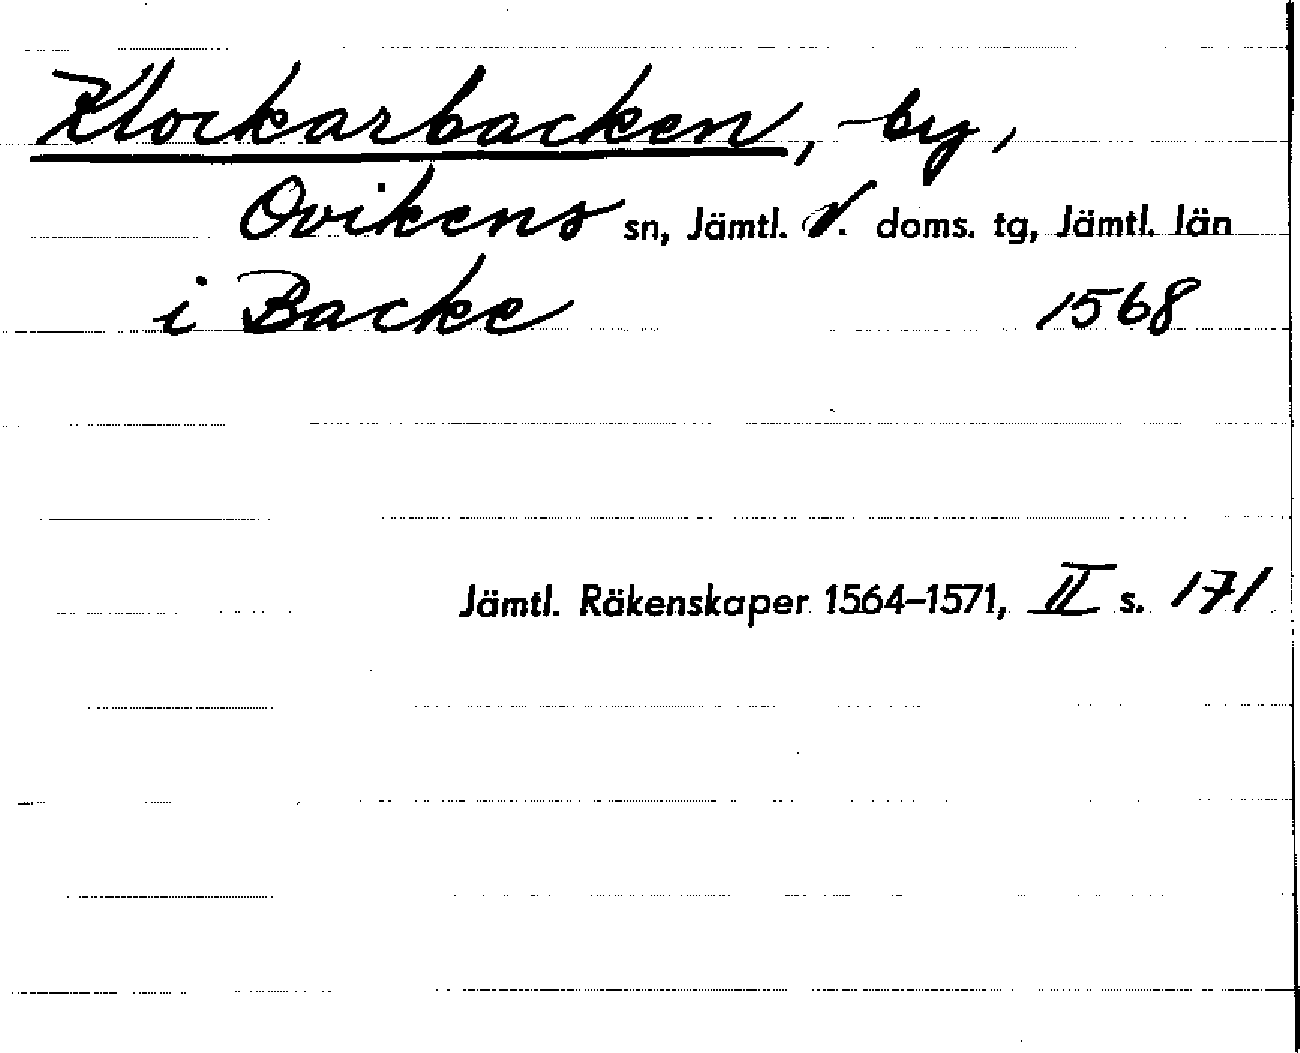 Klockarbacken, -by,
Ovikens sn, Jämtl. V. doms. tg, Jämtl. län
i Backe 1568
Jämtl. Räkenskaper 1564-1571, II s. 171